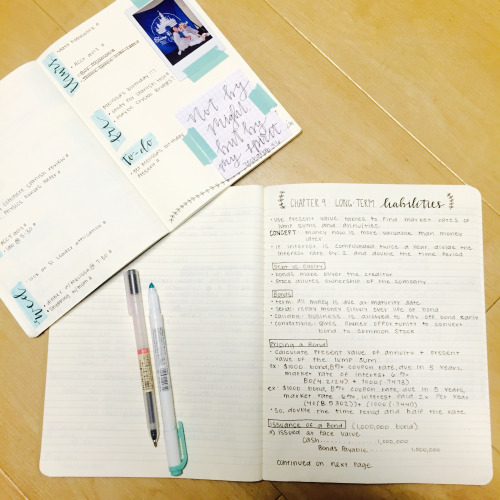 Thurs
ACCT Quiz
Fri
Melissa's birthday !!!
study for Spanish test
To-do
Wed
Not by
might,
but by
my spirit
CHAPTER 9: LONG TERM liabilities
• use present value tables to find market rates of
lump sums and annuities.
CONCEPT: money now is more valuable than money
later.
• if interest is compounded twice a year, divide the
interest rate by 2 and double the time period
Debt vs Equity
• bonds make buyer the creditor
• stock allows ownership of the company
Bonds
• term: all money is due at maturity date
• serial: repay money slowly over life of bond
• callable: business is allowed to pay off bond early
• convertible: gives owner opportunity to convert
bond to common stock
Pricing a Bond
• Calculate present value of annuity + present
value of the lump sum.
ex: $1000 bond, 8% coupon rate, due in 5 years,
market rate of interest 6%
80(4.2124) + 1000(.7473)
ex: $1000 bond, 8% coupon rate, due in 5 years,
market rate 6%, interest paid 2x per year
(40(8.5302)) + (1000(.7440))
• So, double the time period and half the rate
Issuance of a Bond (1,000,000 bond)
1) issued at face value
Cash 1,000,000
Bonds Payable 1,000,000
continued on next page